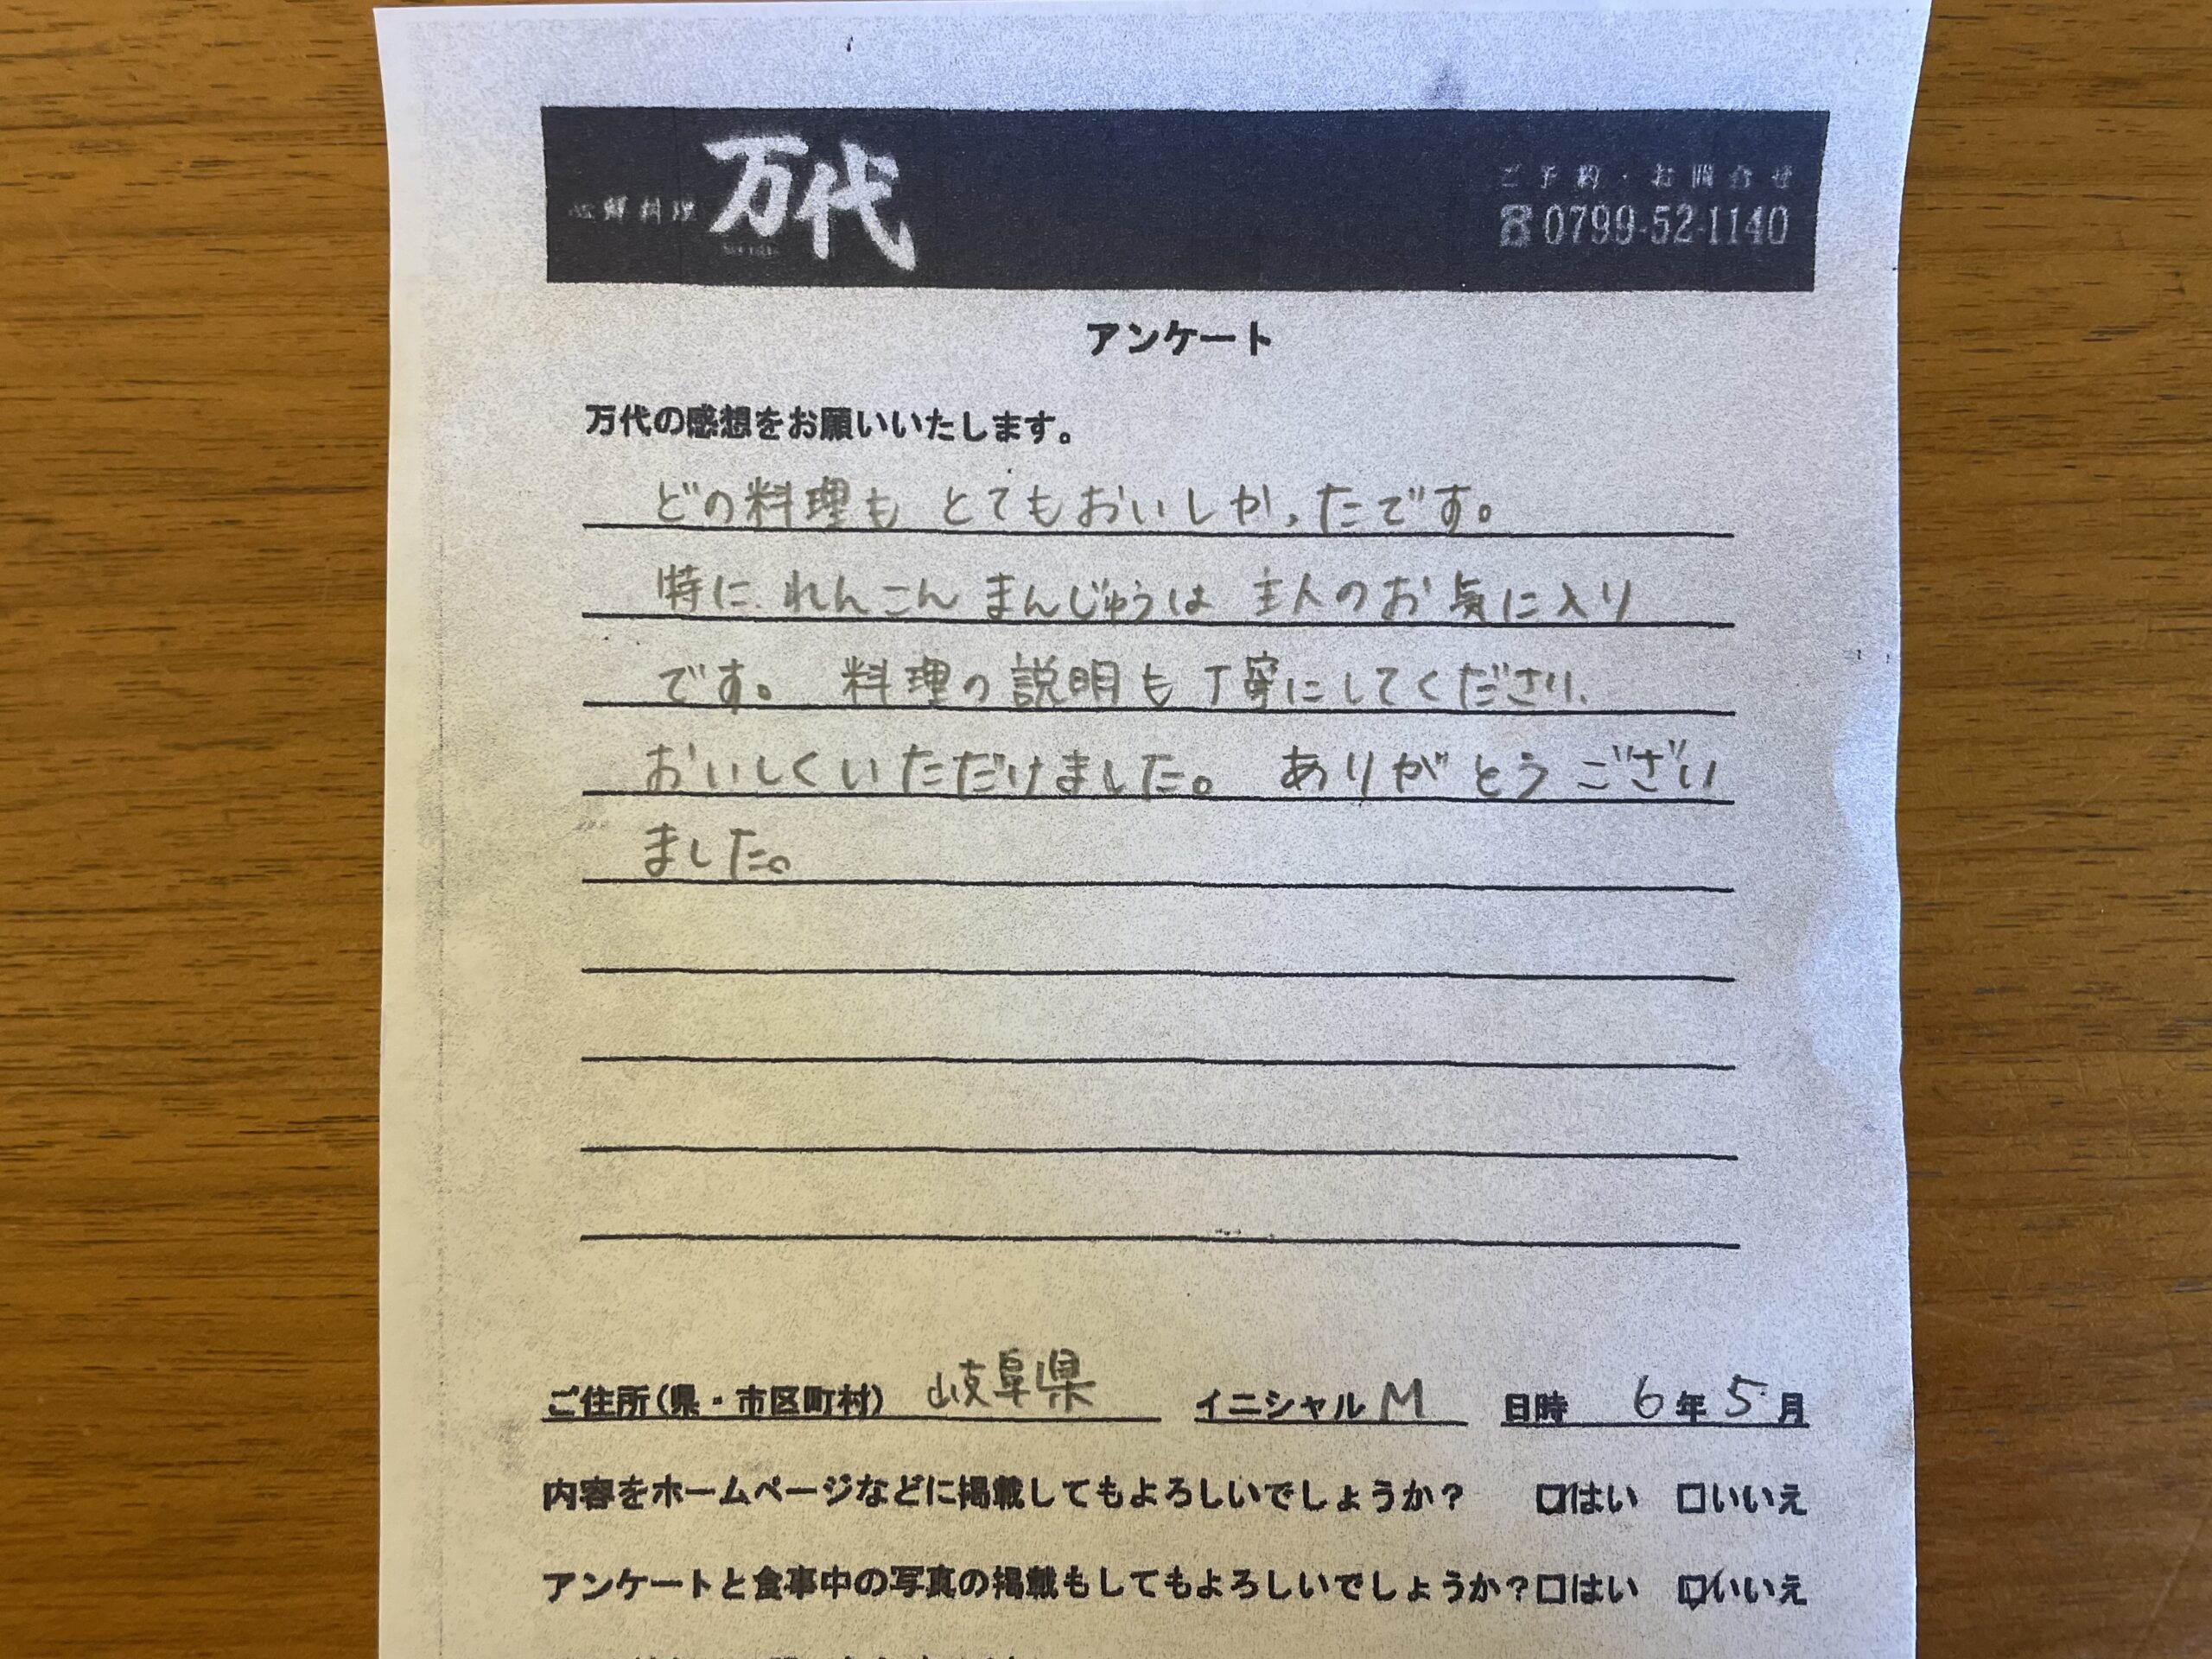 料理 万代
ご予約・お問合せ
☎0799-52-1140
アンケート
万代の感想をお願いいたします。
どの料理も とてもおいしかったです。
特に、れんこん まんじゅうは 主人のお気に入り
です。 料理の説明も丁寧にしてくださり、
おいしくいただけました。 ありがとうござい
ました。
ご住所(県・市区町村) 岐阜県 イニシャル M 日時 6年5月
内容をホームページなどに掲載してもよろしいでしょうか? ☑はい □いいえ
アンケートと食事中の写真の掲載もしてもよろしいでしょうか?□はい ☑いいえ